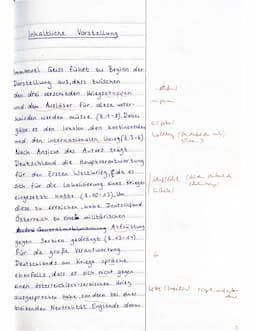 Inhaltliche Vorstellung
Immanuel Geiss führt zu Beginn der
Darstellung aus, dass zwischen
den drei verschieden Kriegsetappen
und dem Auslöser für diese unter-
schieden werden müsse (Z.1-3). Dabei
gäbe es den lokalen, den kontinentalen
und den internationalen Krieg (Z.3-6).
Nach Ansicht des Autors trägt
Deutschland die Hauptverantwortung
für den Ersten Weltkrieg, da es
sich für die Lokalisierung eines Krieges
eingesetzt hatte (Z.10-13). Um
diese zu erreichen, habe Deutschland
Österreich zu militärischen
Aufrüstung
gegen Serbien gedrängt (Z.13-17).
Für die große Verantwortung
Deutschlands am Kriege spräche
ebenfalls, dass es sich nicht gegen
einen österreichisch-serbischen Krieg
ausgesprochen habe, sondern bei einer
bleibenden Neutralität Englands diesen